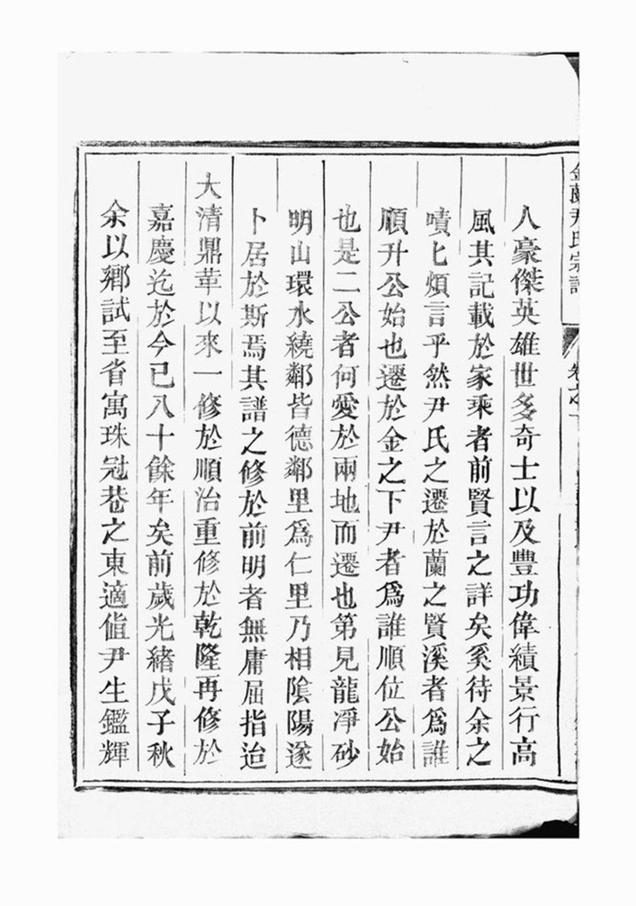 金蘭尹氏宗譜
卷之
人豪傑英雄世多奇士以及豐功偉績景行高
風其記載於家乘者前賢言之詳矣奚待余之
嘖匕煩言乎然尹氏之遷於蘭之賢溪者爲誰
順升公始也遷於金之下尹者爲誰順位公始
也是二公者何愛於兩地而遷也第見龍凈砂
明山環水繞鄰皆德鄰里爲仁里乃相陰陽遂
卜居於斯焉其譜之修於前明者無庸屈指迨
大清鼎革以來一修於順治重修於乾隆再修於
嘉慶迄於今已八十餘年矣前歲光緒戊子秋
余以鄉試至省寓珠冠巷之東適值尹生鑑輝